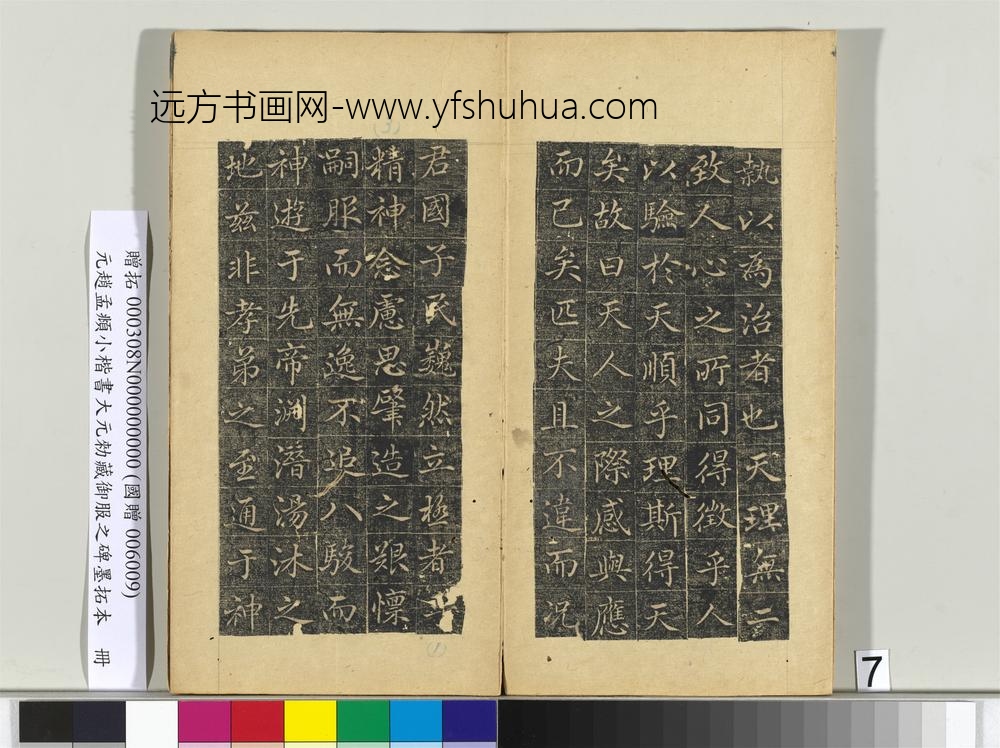 远方书画网-www.yfshuhua.com
執以為治者也天理無二
致人心之所同得徵乎人
以驗於天順乎理斯得天
矣故曰天人之際感與應
而已矣匹夫且不違而況
君國子民巍然立極者
精神念慮思肇造之艱懍
嗣服而無逸不追八駿而
神遊于先帝淵潛湯沐之
地茲非孝弟之至通于神
贈拓 000308N000000000 (國贈 006009)
元趙孟頫小楷書大元勅藏御服之碑墨拓本 冊
7